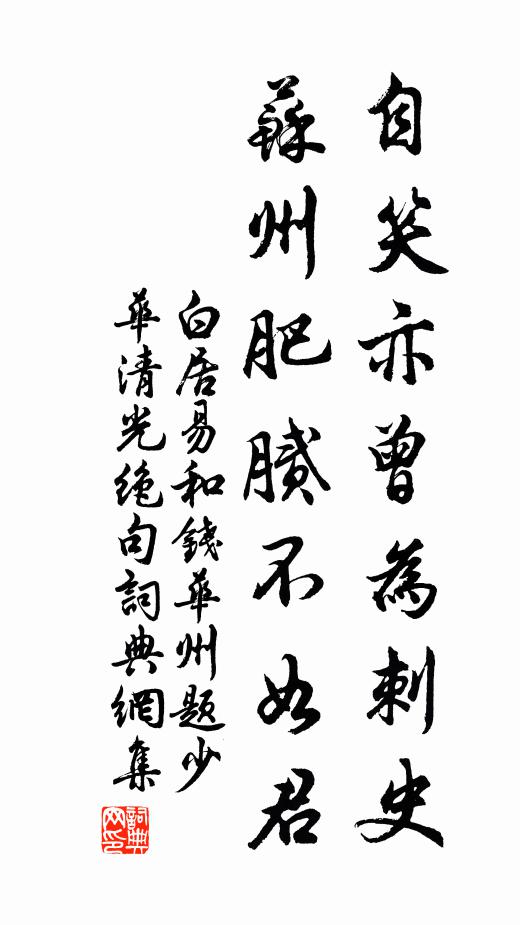 自笑亦曾為刺史
蘇州肥膩不如君
白居易和錢華州題少
華清光絕句詞典網集
詞典網印